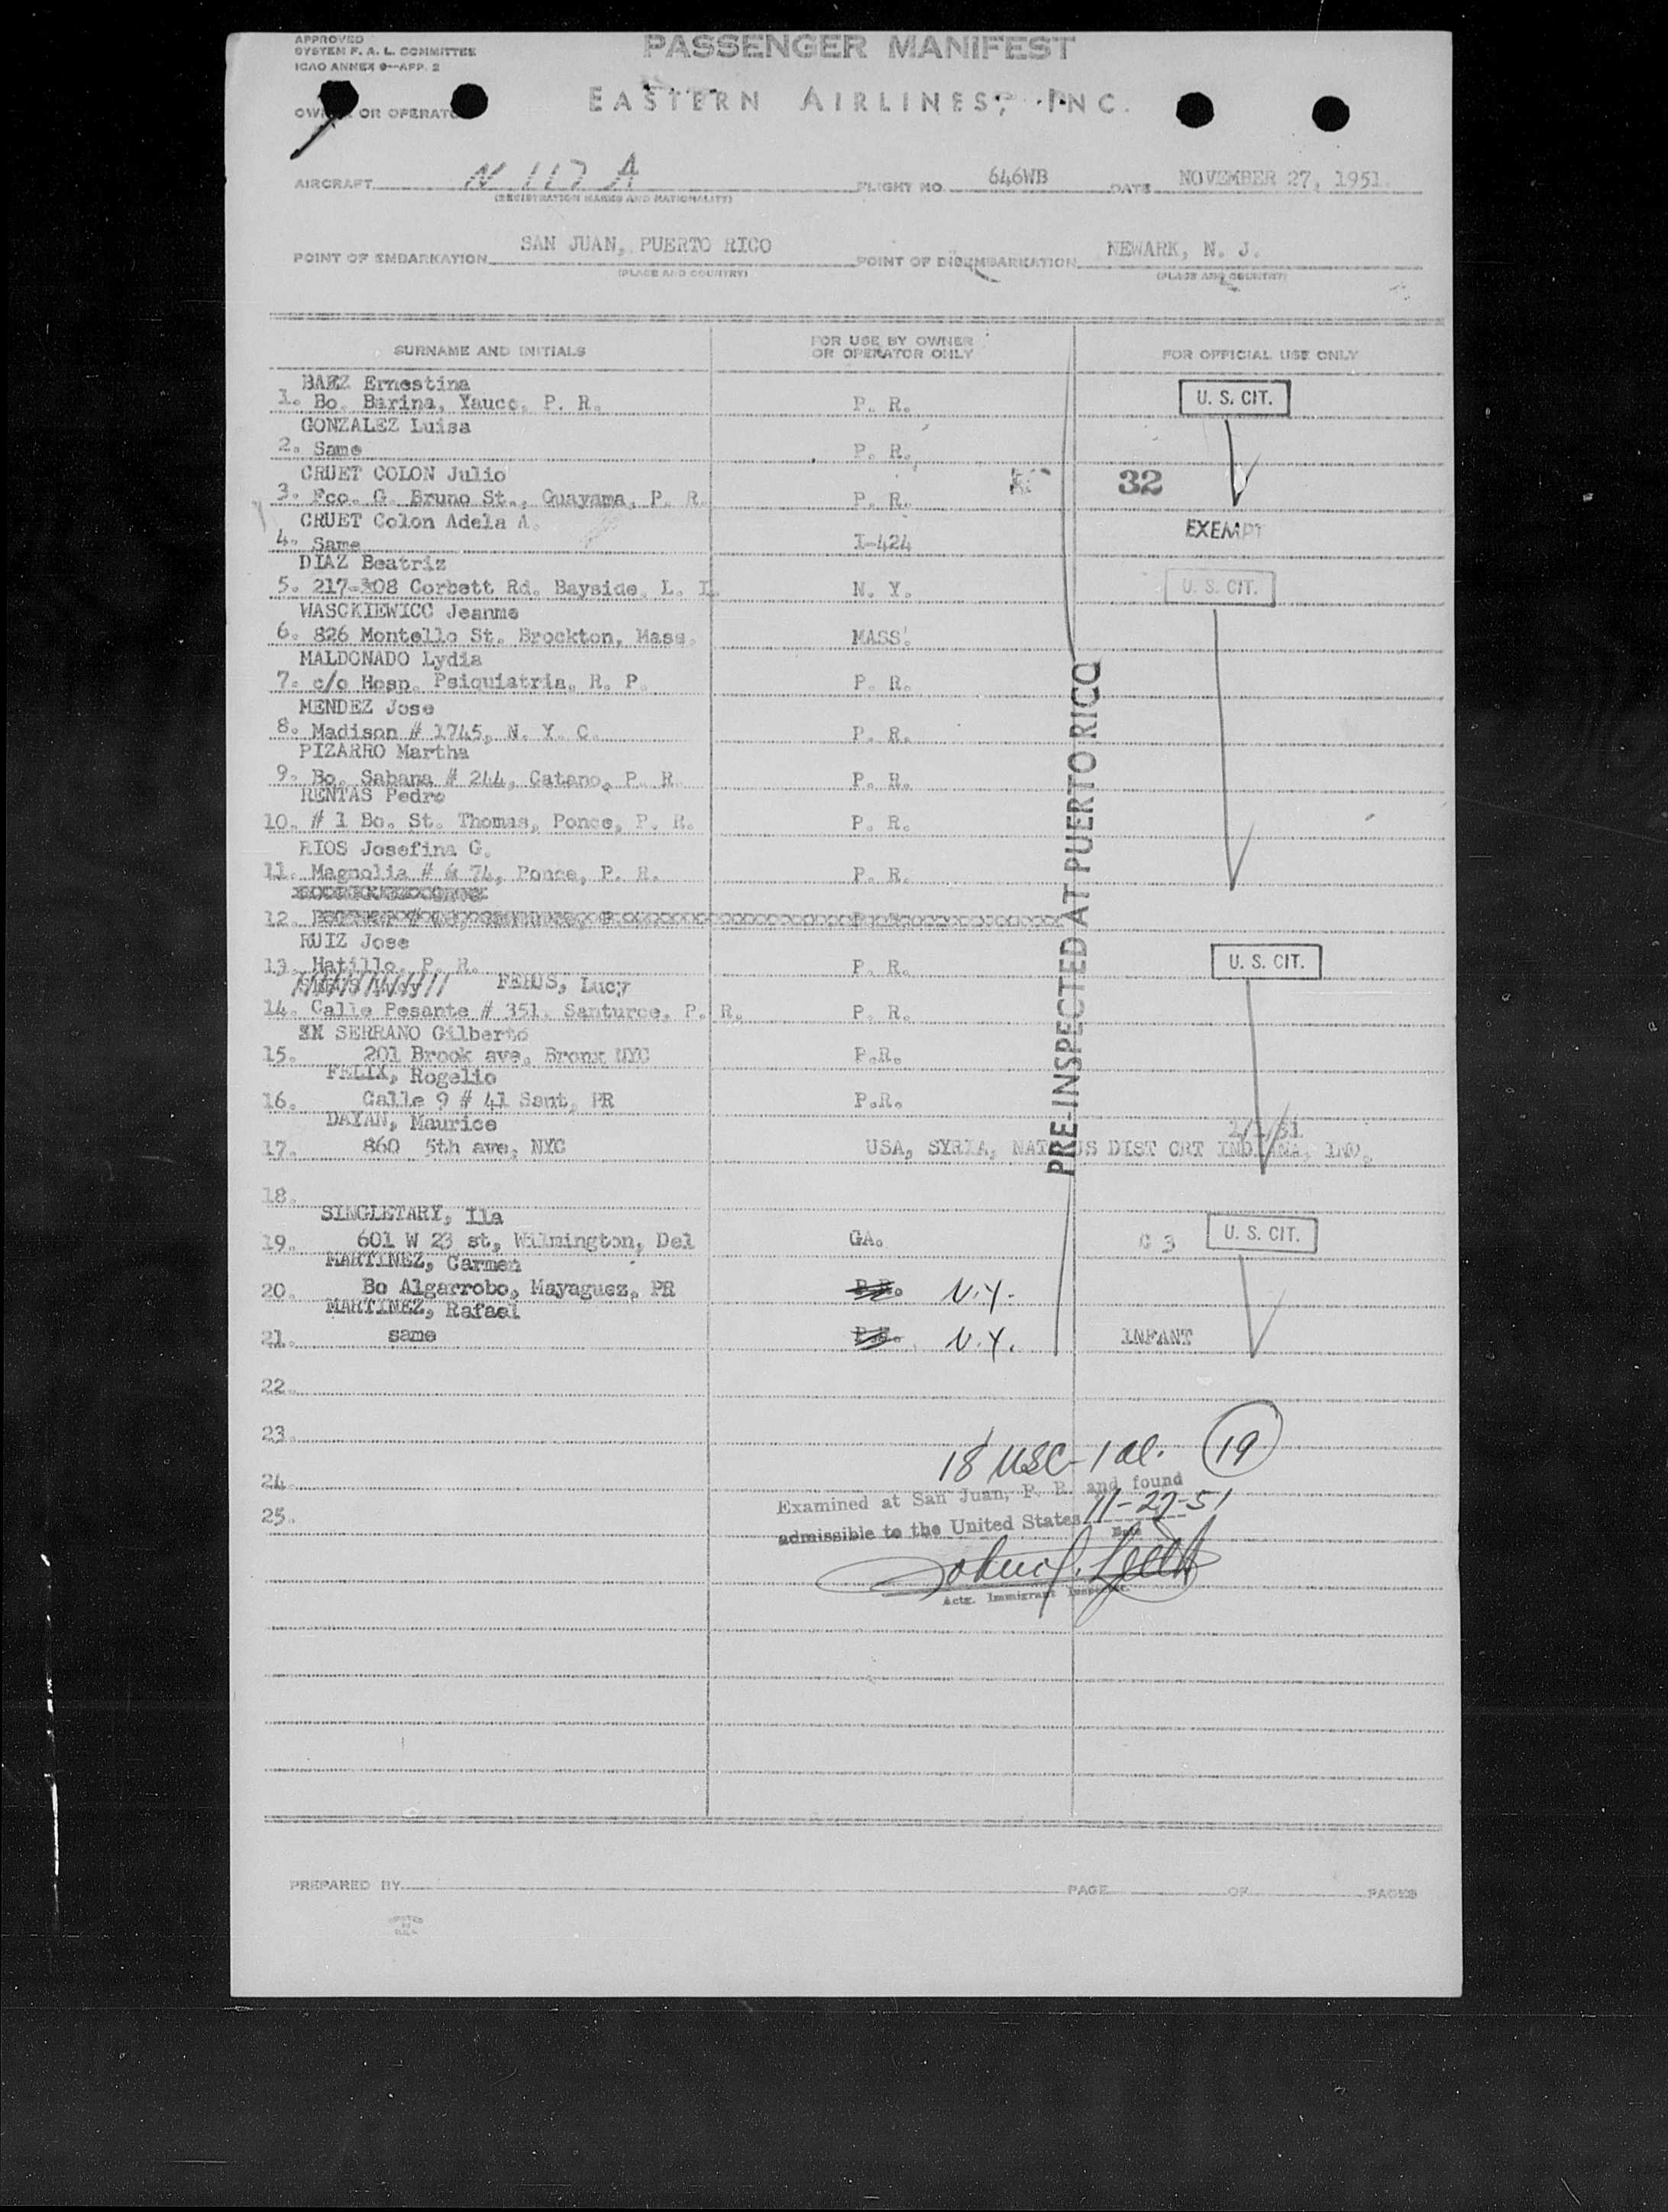 APPROVED
SYSTEM F. A. L. COMMITTEE
ICAO ANNEX 9—APP. 2
PASSENGER MANIFEST
EASTERN AIRLINES, INC.
OWNER OR OPERATOR
AIRCRAFT N 117 A FLIGHT NO. 646WB DATE NOVEMBER 27, 1951.
(REGISTRATION MARKS AND NATIONALITY)
POINT OF EMBARKATION SAN JUAN, PUERTO RICO POINT OF DISEMBARKATION NEWARK, N. J.
(PLACE AND COUNTRY) (PLACE AND COUNTRY)
SURNAME AND INITIALS FOR USE BY OWNER OR OPERATOR ONLY FOR OFFICIAL USE ONLY
BAEZ Ernestina
1. Bo. Barina, Yauco, P. R. P. R. U. S. CIT.
GONZALEZ Luisa
2. Same P. R.
CRUET COLON Julio
3. Fco. G. Bruno St., Guayama, P. R. P. R. 32
CRUET Colon Adela A.
4. Same I-424 EXEMPT
DIAZ Beatriz
5. 217-308 Corbett Rd. Bayside, L. I. N. Y. U. S. CIT.
WASCKIEWICC Jeanne
6. 826 Montello St. Brockton, Mass. MASS.
MALDONADO Lydia
7. c/o Hosp. Psiquiatria, R. P. P. R.
MENDEZ Jose
8. Madison # 1745, N. Y. C. P. R.
PIZARRO Martha
9. Bo. Sabana # 244, Catano, P. R. P. R.
RENTAS Pedro
10. # 1 Bo. St. Thomas, Ponce, P. R. P. R.
RIOS Josefina G.
11. Magnolia # 74, Ponce, P. R. P. R.
12.
RUIZ Jose
13. Hatillo, P. R. P. R. U. S. CIT.
FEBUS, Lucy
14. Calle Pesante # 351, Santurce, P. R. P. R.
SERRANO Gilberto
15. 201 Brook ave, Bronx NYC P.R.
FELIX, Rogelio
16. Calle 9 # 41 Sant, PR P.R.
DAYAN, Maurice
17. 860 5th ave, NYC USA, SYRIA, NAT US DIST CRT INDIANA, IND.
PRE-INSPECTED AT PUERTO RICO
18.
SINGLETARY, Ila
19. 601 W 23 st, Wilmington, Del GA. C 3 U. S. CIT.
MARTINEZ, Carmen
20. Bo Algarrobo, Mayaguez, PR P.R. N.Y.
MARTINEZ, Rafael
21. same P.R. N.Y. INFANT
22.
23.
18 USC-1 al. 19
24.
Examined at San Juan, P. R. and found
25.
admissible to the United States 11-27-51
Date
Actg. Immigrant Inspector
PREPARED BY PAGE OF PAGES
PRINTED
IN
U.S.A.